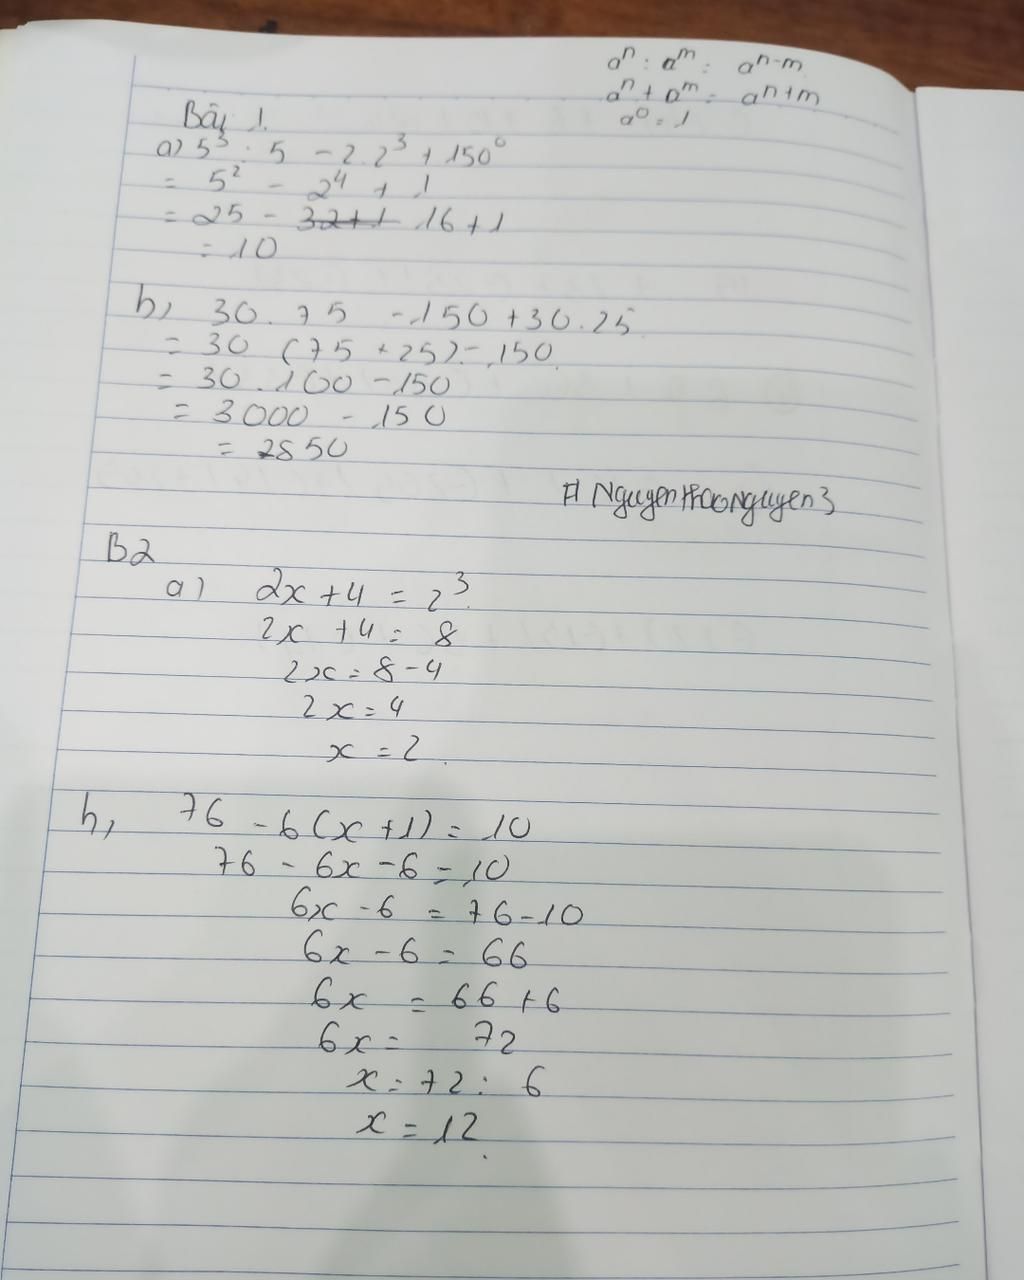 aⁿ : aᵐ = aⁿ⁻ᵐ
aⁿ + aᵐ = aⁿ⁺ᵐ
a⁰ = 1
Bài 1.
a) 5³ : 5 - 2.2³ + 150⁰
= 5² - 2⁴ + 1
= 25 - 32+1 16 + 1
= 10
b, 30. 75 - 150 + 30.25
= 30 (75 + 25) - 150
= 30 . 100 - 150
= 3000 - 150
= 2850
B2
a) 2x + 4 = 2³
2x + 4 = 8
2x = 8 - 4
2x = 4
x = 2
b, 76 - 6(x + 1) = 10
76 - 6x - 6 = 10
6x - 6 = 76 - 10
6x - 6 = 66
6x = 66 + 6
6x = 72
x = 72 : 6
x = 12